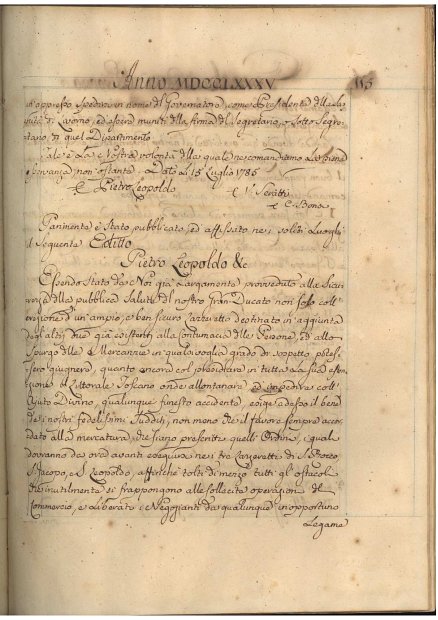 Anno MDCCLXXXV
115
in appresso spedirsi in nome del Governatore, come Presidente della Sa
nità di Livorno, ed essere muniti della firma del Segretario, o Sotto Segre
tario di quel Dipartimento
Tale è la Nostra volontà della quale ne comandiamo la piena
osservanza non ostante. Dato li 15 Luglio 1785
Pietro Leopoldo
V. Seratti
C. Bona
Parimente è stato pubblicato, ed affissato nei soliti Luoghi
il seguente Editto
Pietro Leopoldo &c
Essendo Stato da Noi già largamente provveduto alla Sicu
rezza della pubblica Salute del nostro Gran Ducato non solo coll'
erezione d'un ampio, e ben sicuro Lazzeretto destinato in aggiunta
degl'altri due già esistenti alla contumacia delle Persone, ed allo
Spurgo delle Mercanzie in qualsivoglia grado di sospetto potes
sero giugnervi, quanto ancora col presidiare in tutta la sua esten
zione il Littorale Toscano onde allontanare ed impedire coll'
Ajuto Divino, qualunque funesto accidente, esige adesso il bene
dei nostri fedelissimi Sudditi, non meno che il favore sempre accor
dato alla mercatura, che siano prescritti quelli Ordini, i quali
dovranno da ora avanti eseguirsi nei tre Lazzeretti di S. Rocco,
S. Jacopo, e S. Leopoldo, affinchè tolti di mezzo tutti gl'ostacoli
che inutilmente si frappongono alle sollecite operazioni del
Commercio, e liberati i Negozianti da qualunque inopportuno
Legame